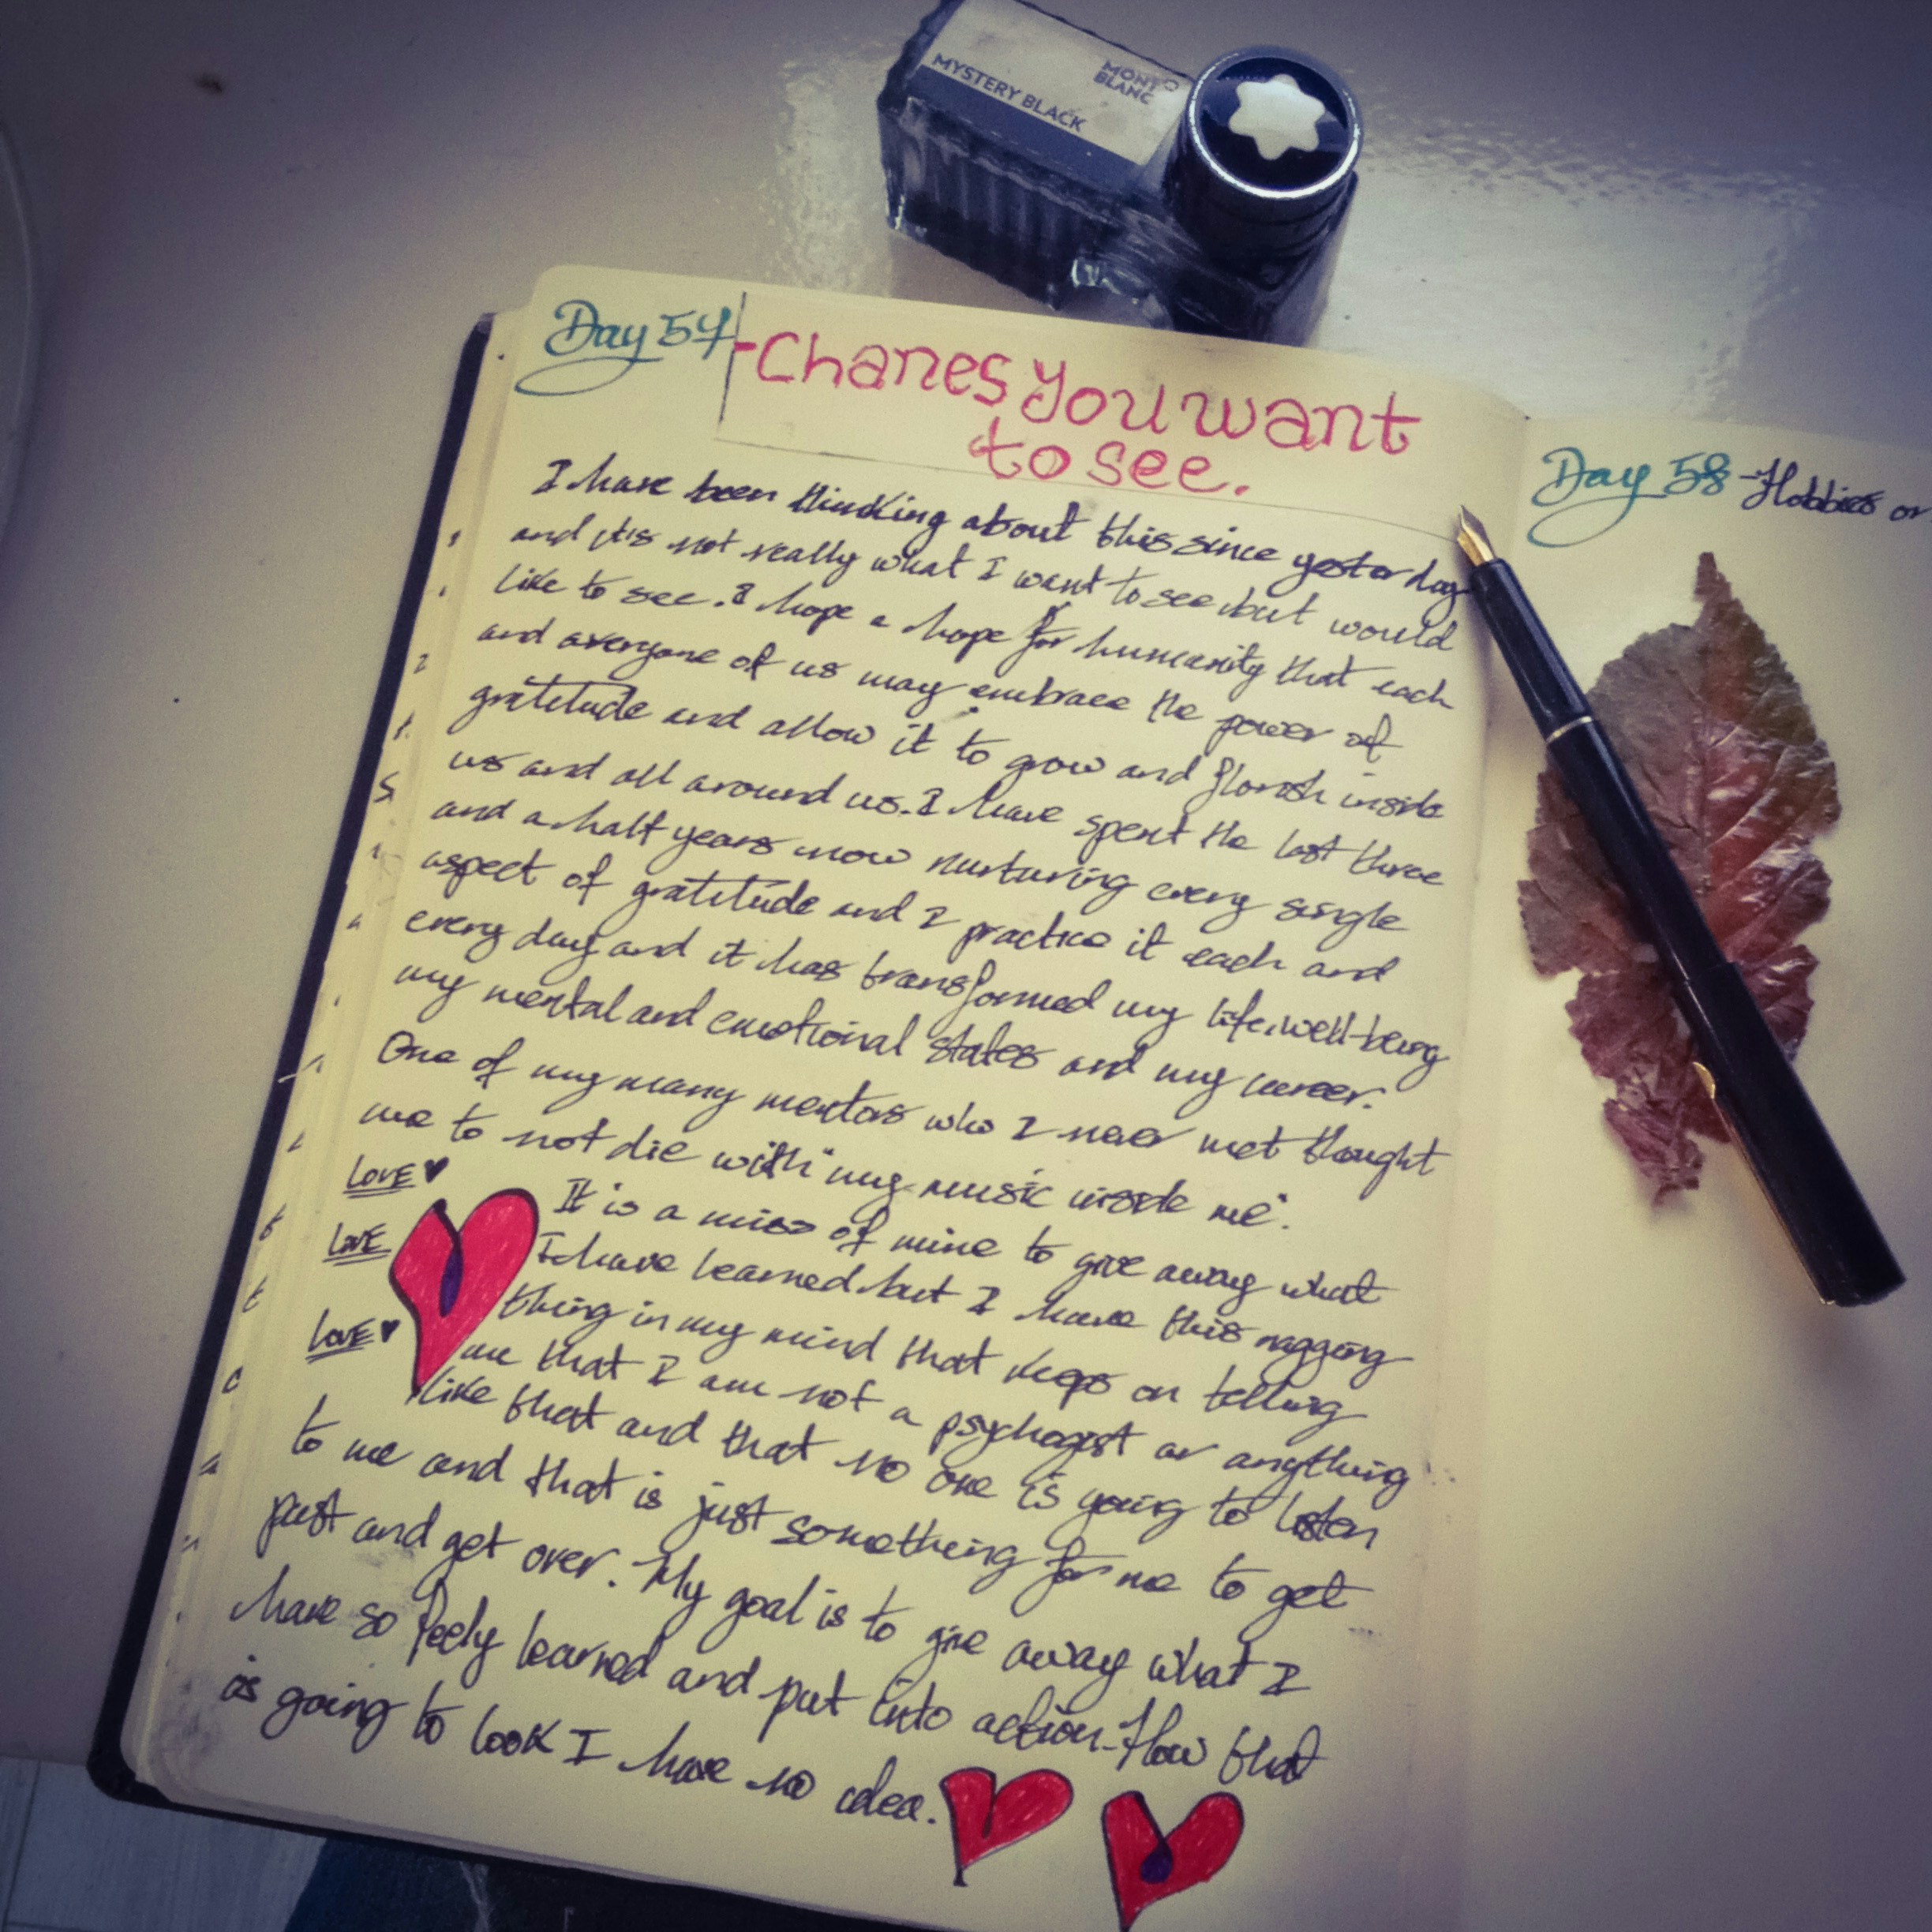 MONT
BLANC
MYSTERY BLACK
Day 57
-Chanes you want
to see.
I have been thinking about this since yesterday
and it's not really what I want to see but would
like to see. I hope a hope for humanity that each
and averyone of us may embrace the power of
gratitude and allow it to grow and florish inside
us and all around us. I have spent the last three
and a half years now nurturing every single
aspect of gratitude and I practice it each and
every day and it has transformed my life, well-being
my mental and emotional states and my career.
One of my many mentors who I never met thought
me to not die with "my music inside me".
LOVE ♥
LOVE
LOVE ♥
It is a miss of mine to give away what
I have learned but I have this nagging
thing in my mind that keeps on telling
me that I am not a psychogist or anything
like that and that no one is going to listen
to me and that is just something for me to get
past and get over. My goal is to give away what I
have so feely learned and put into action. How that
is going to look I have no idea.
Day 58 - Hobbies or